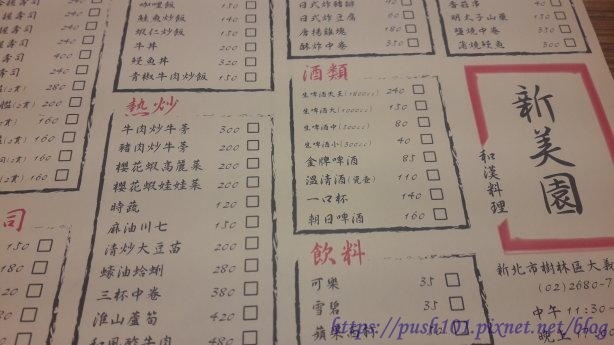 咖哩飯
鮭魚炒飯 150
蝦仁炒飯 150
牛丼 200
鰻魚丼 320
青椒牛肉炒飯 150
熱炒
牛肉炒牛蒡 300
豬肉炒牛蒡 200
櫻花蝦高麗菜 200
櫻花蝦娃娃菜 200
時蔬 120
麻油川七 150
清炒大豆苗 200
蠔油蛤蜊 280
三杯中卷 380
淮山蘆筍 420
和風酸牛肉 480
壽司 240
壽司 240
壽司 400
280
160
160
160
160
司
150
180
120
日式炸豬排
日式炸豆腐 60
唐揚雞塊 180
酥炸中卷 350
酒類
生啤酒大王(1800cc) 240
生啤酒大(1000cc) 150
生啤酒中(500cc) 80
生啤酒小(300cc) 40
金牌啤酒 85
溫清酒(瓷壺) 110
一口杯 140
朝日啤酒 160
飲料
可樂 35
雪碧 35
蘋果西打
香菇串
明太子山藥 150
鹽燒中卷 300
蒲燒鰻魚 300
新美園
和漢料理
新北市樹林區大義
(02)2680-7
中午 11:30-
晚上 17:30
https://push101.pixnet.net/blog